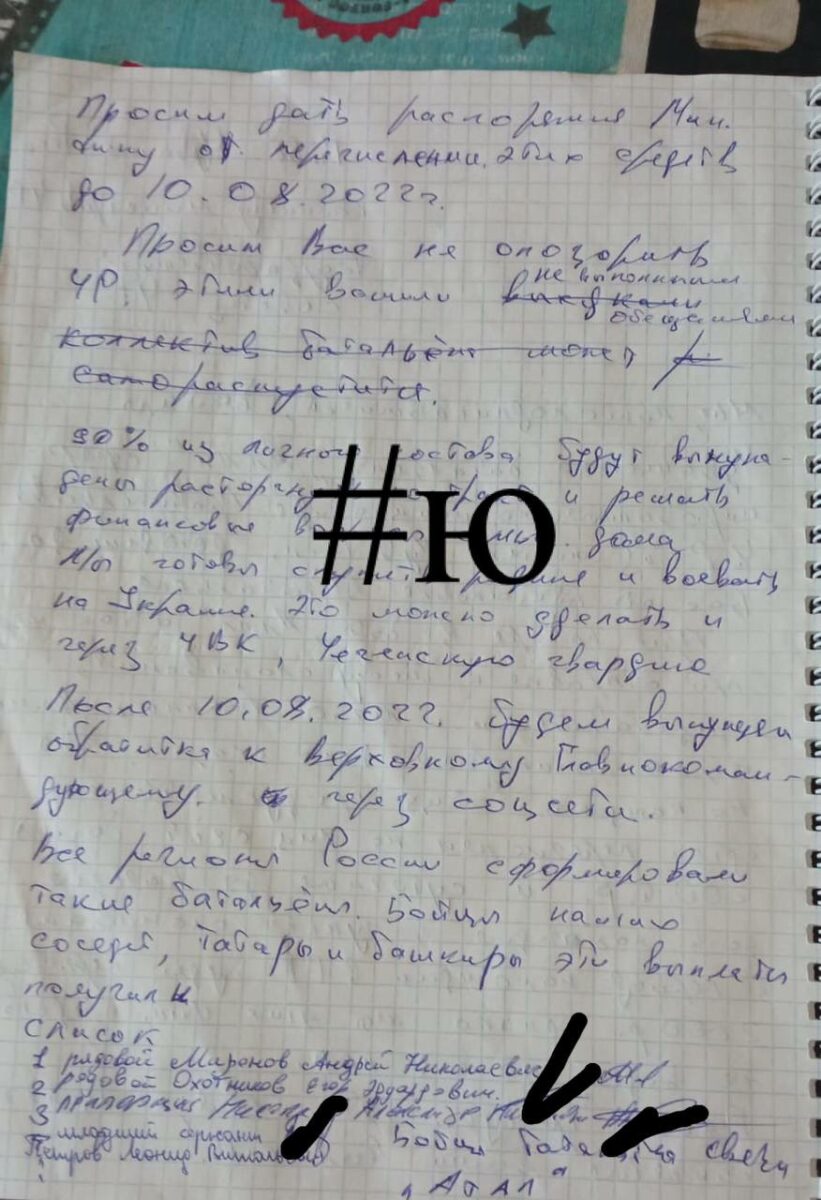 Просим дать распоряжения Мин.
фину от перечислении этих средств
до 10.08.2022г.
Просим Вас не опозорить
ЧР. этими вашими не выполнимыми
обещаниями
коллектив батальёна может
самораспустится.
90% из личного состава будут вынуж-
дены и решать
финансовые дома
Мы готовы и воевать
на Украине. Это можно сделать и
через ЧВК, Чеченскую гвардию
#Ю
После 10.08.2022г. будем вынуждены
обратится к Верховному Главнокоман-
дующему через соцсети.
Все регионы России сформировали
такие батальёны. Бойцы наших
соседей, татары и башкиры эти выплаты
получили
список
1 рядовой Миронов Андрей Николаевич
2 рядовой Охотников Егор Эдуардович
3 Александр
младший сержант
Петров Леонид Витальевич
Бойцы батальона связи
"Атал"